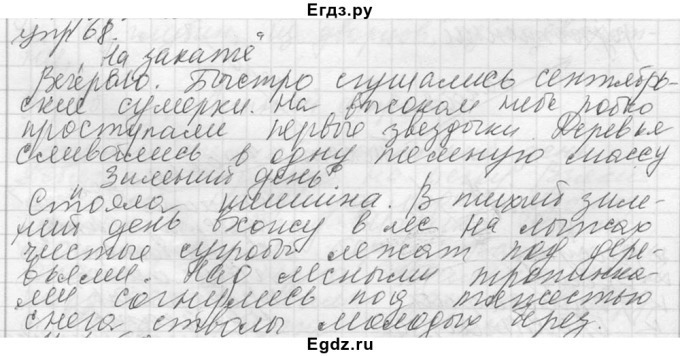 Егдз.ру
упр 68.
"На закате"
Вечерело. Быстро сгущались сентябрь-
ские сумерки. На высоком небе робко
проступали первые звездочки. Деревья
сливались в одну темную массу
"Зимний день"
Стояла тишина. В тихий зим-
ний день вхожу в лес на лыжах
чистые сугробы лежат под дере-
вьями. Над лесными тропинка-
ми согнулись под тяжестью
снега стволы молодых берез.
Egdz.ru